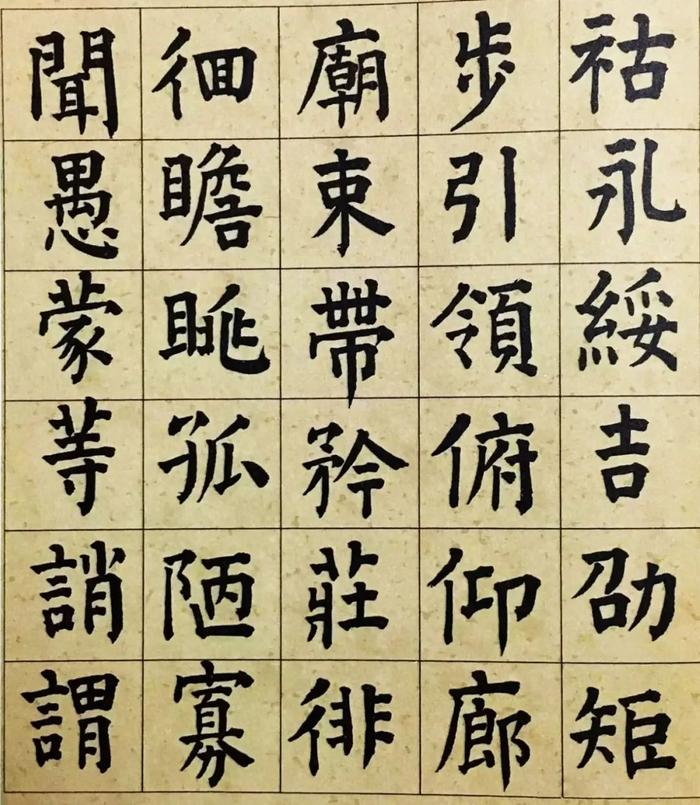 祜永綏吉劭矩
步引領俯仰廊
廟束帶矜莊徘
徊瞻眺孤陋寡
聞愚蒙等誚謂